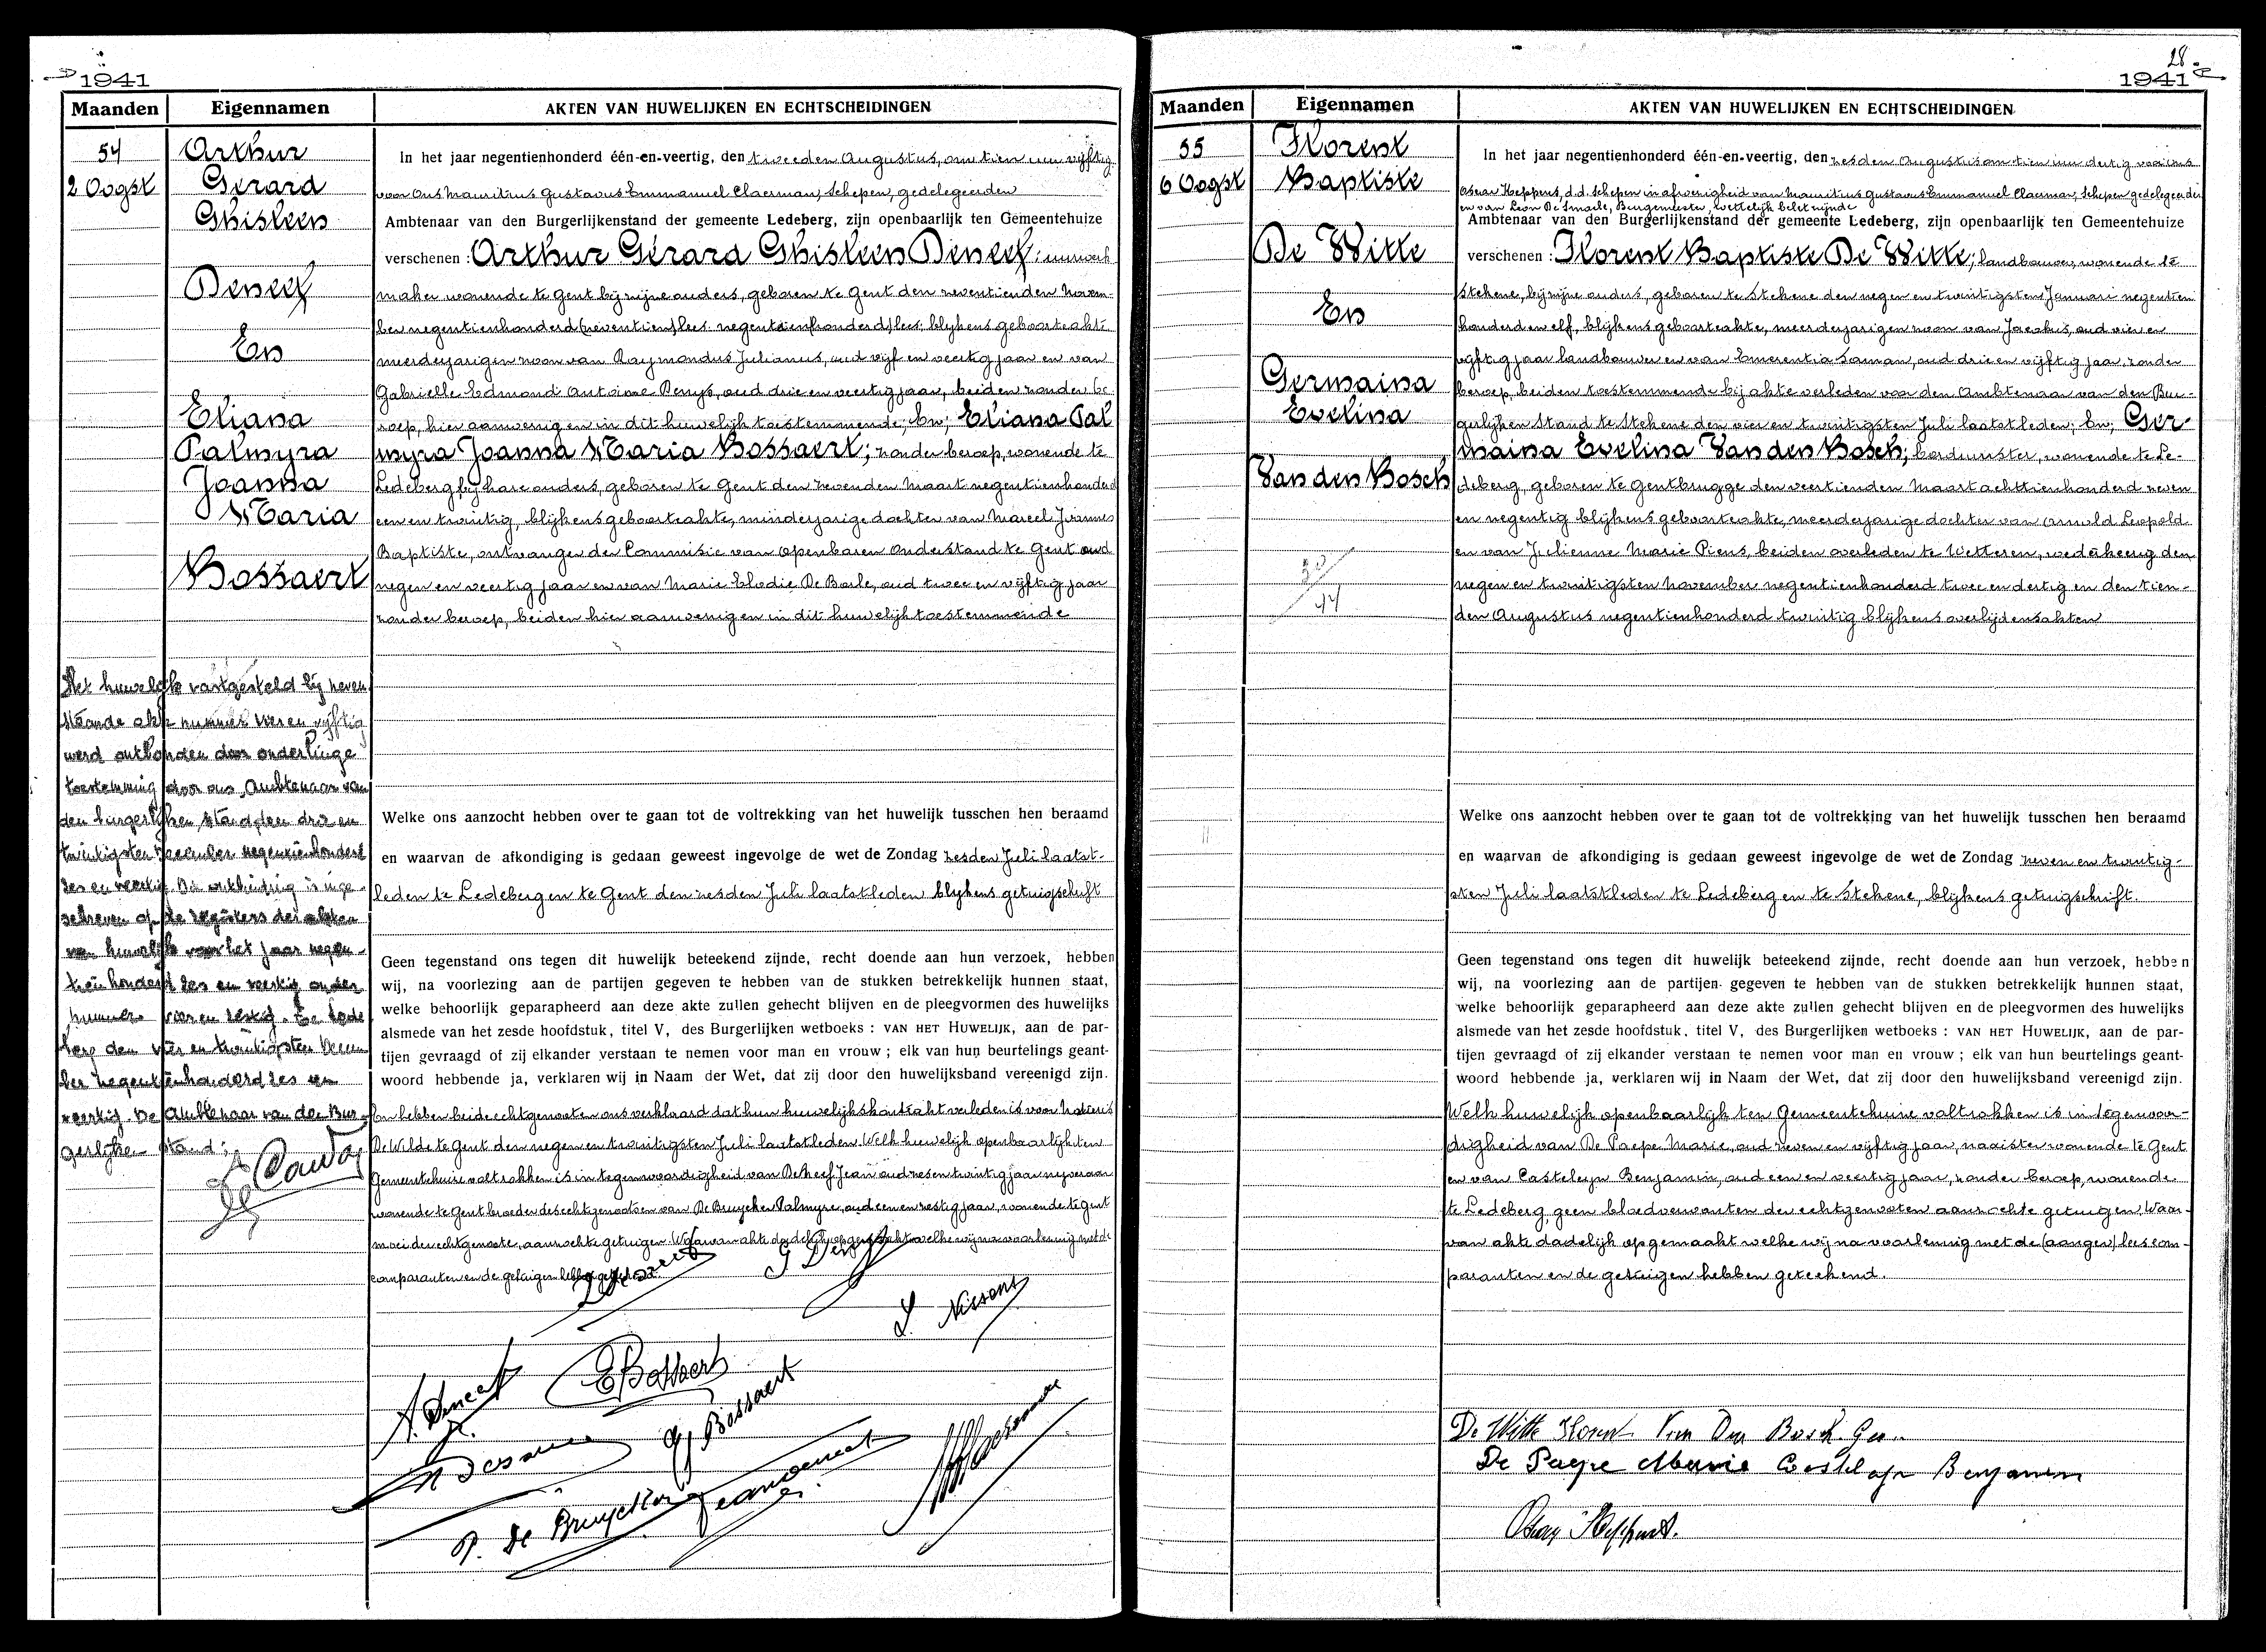 1941
Maanden Eigennamen AKTEN VAN HUWELIJKEN EN ECHTSCHEIDINGEN
54
2 Oogst
Arthur
Gérard
Ghisleen
Deneef
En
Eliana
Palmyra
Joanna
Maria
Bossaert
In het jaar negentienhonderd één-en-veertig, den tweeden Augustus, om tien uur vijftig
voor Ons Mauritius Gustavus Emmanuel Claerman, Schepen, gedelegeerden
Ambtenaar van den Burgerlijkenstand der gemeente Ledeberg, zijn openbaarlijk ten Gemeentehuize
verschenen : Arthur Gérard Ghisleen Deneef; uurwerk
maker wonende te Gent bij zijne ouders, geboren te Gent den zeventienden Novem-
ber negentienhonderd (zeventien) lees negentienhonderd) lees: blijkens geboorteakte
meerderjarigen zoon van Raymondus Julianus, oud vijf en veertig jaar en van
Gabrielle Edmond Antoine Denys, oud drie en veertig jaar, beiden zonder be
roep, hier aanwezig en in dit huwelijk toestemmende; En; Eliana Pal
myra Joanna Maria Bossaert; zonder beroep, wonende te
Ledeberg, bij hare ouders, geboren te Gent den zevenden Maart negentienhonderd
een en twintig, blijkens geboorteakte, minderjarige dochter van Marcel Joannes
Baptiste, ontvanger der Commissie van Openbaren Onderstand te Gent oud
negen en veertig jaar en van Marie Elodie De Baele, oud twee en vijftig jaar
zonder beroep, beiden hier aanwezig en in dit huwelijk toestemmende
Het huwelijk vastgesteld bij neven
staande akte nummer vier en vijftig
werd ontbonden door onderlinge
toestemming door ons Ambtenaar van
den burgerlijken stand, den drie en
twintigsten December negentienhonderd
zes en veertig. De ontbinding is inge-
schreven op de registers der akten
van huwelijk voor het jaar negen-
tienhonderd zes en veertig onder
nummer vier en zestig. Te Lede
berg den vier en twintigsten Decem
ber negentienhonderd zes en
veertig. De Ambtenaar van den Bur-
gerlijken stand;
Welke ons aanzocht hebben over te gaan tot de voltrekking van het huwelijk tusschen hen beraamd
en waarvan de afkondiging is gedaan geweest ingevolge de wet de Zondag zesden Juli laatst-
leden te Ledeberg en te Gent den zesden Juli laatstleden blijkens getuigschrift
Geen tegenstand ons tegen dit huwelijk beteekend zijnde, recht doende aan hun verzoek, hebben
wij, na voorlezing aan de partijen gegeven te hebben van de stukken betrekkelijk hunnen staat,
welke behoorlijk geparapheerd aan deze akte zullen gehecht blijven en de pleegvormen des huwelijks
alsmede van het zesde hoofdstuk, titel V, des Burgerlijken wetboeks : VAN HET HUWELIJK, aan de par-
tijen gevraagd of zij elkander verstaan te nemen voor man en vrouw ; elk van hun beurtelings geant-
woord hebbende ja, verklaren wij in Naam der Wet, dat zij door den huwelijksband vereenigd zijn.
En hebben beide echtgenooten ons verklaard dat hun huwelijkskontrakt verleden is voor Notaris
De Wilde te Gent den negen en twintigsten Juli laatstleden. Welk huwelijk openbaarlijk ten
Gemeentehuize voltrokken is in tegenwoordigheid van Deneef Jean oud zes en twintig jaar nijveraar
wonende te Gent broeder des echtgenoots en van De Bruycker Palmyre, oud een en zestig jaar, wonende te Gent
moei der echtgenoote, aanzochte getuigen. Waarvan akte dadelijk opgemaakt welke wij na voorlezing met de
comparanten en de getuigen hebben geteekend.
L. Nissens
A. Deneef
E Bossaert
Bossaert
P. De Bruycker
Jean Deneef
28
1941
Maanden Eigennamen AKTEN VAN HUWELIJKEN EN ECHTSCHEIDINGEN
55
6 Oogst
Florent
Baptiste
De Witte
En
Germaina
Evelina
Van den Bosch
30
44
In het jaar negentienhonderd één-en-veertig, den zesden Augustus om tien uur dertig voor ons
Oscar Heppens, d.d. schepen in afwezigheid van Mauritius Gustavus Emmanuel Claerman, Schepen gedelegeerden
en van Leon De Smaele, Burgemeester, wettelijk belet zijnde
Ambtenaar van den Burgerlijkenstand der gemeente Ledeberg, zijn openbaarlijk ten Gemeentehuize
verschenen : Florent Baptiste De Witte; landbouwer, wonende te
Stekene, bij zijne ouders, geboren te Stekene den negen en twintigsten Januari negentien
honderd en elf, blijkens geboorteakte, meerderjarigen zoon van Jacobus, oud vier en
vijftig jaar landbouwer en van Emerentia Saman, oud drie en vijftig jaar, zonder
beroep, beiden toestemmende bij akte verleden voor den Ambtenaar van den Bur-
gerlijken Stand te Stekene den vier en twintigsten Juli laatstleden; En; Ger
maina Evelina Van den Bosch; borduurster, wonende te Le-
deberg, geboren te Gentbrugge den veertienden Maart achttienhonderd zeven
en negentig blijkens geboorteakte, meerderjarige dochter van Arnold Leopold
en van Julienne Marie Piens, beiden overleden te Wetteren, wederkeerig den
negen en twintigsten November negentienhonderd twee en dertig en den tien-
den Augustus negentienhonderd twintig blijkens overlijdensakten
Welke ons aanzocht hebben over te gaan tot de voltrekking van het huwelijk tusschen hen beraamd
en waarvan de afkondiging is gedaan geweest ingevolge de wet de Zondag zeven en twintig-
sten Juli laatstleden te Ledeberg en te Stekene, blijkens getuigschrift.
Geen tegenstand ons tegen dit huwelijk beteekend zijnde, recht doende aan hun verzoek, hebben
wij, na voorlezing aan de partijen gegeven te hebben van de stukken betrekkelijk hunnen staat,
welke behoorlijk geparapheerd aan deze akte zullen gehecht blijven en de pleegvormen des huwelijks
alsmede van het zesde hoofdstuk, titel V, des Burgerlijken wetboeks : VAN HET HUWELIJK, aan de par-
tijen gevraagd of zij elkander verstaan te nemen voor man en vrouw ; elk van hun beurtelings geant-
woord hebbende ja, verklaren wij in Naam der Wet, dat zij door den huwelijksband vereenigd zijn.
Welk huwelijk openbaarlijk ten Gemeentehuize voltrokken is in tegenwoor-
digheid van De Paepe Marie, oud zeven en vijftig jaar, naaister wonende te Gent
en van Casteleyn Benjamin, oud een en veertig jaar, zonder beroep, wonende
te Ledeberg, geen bloedverwanten der echtgenooten aanzochte getuigen. Waar-
van akte dadelijk opgemaakt welke wij na voorlezing met de (aangev) lees com-
paranten en de getuigen hebben geteekend.
De Witte Florent Van Den Bosch Ger.
De Paepe Marie Casteleyn Benjamin
Oscar Heppens.